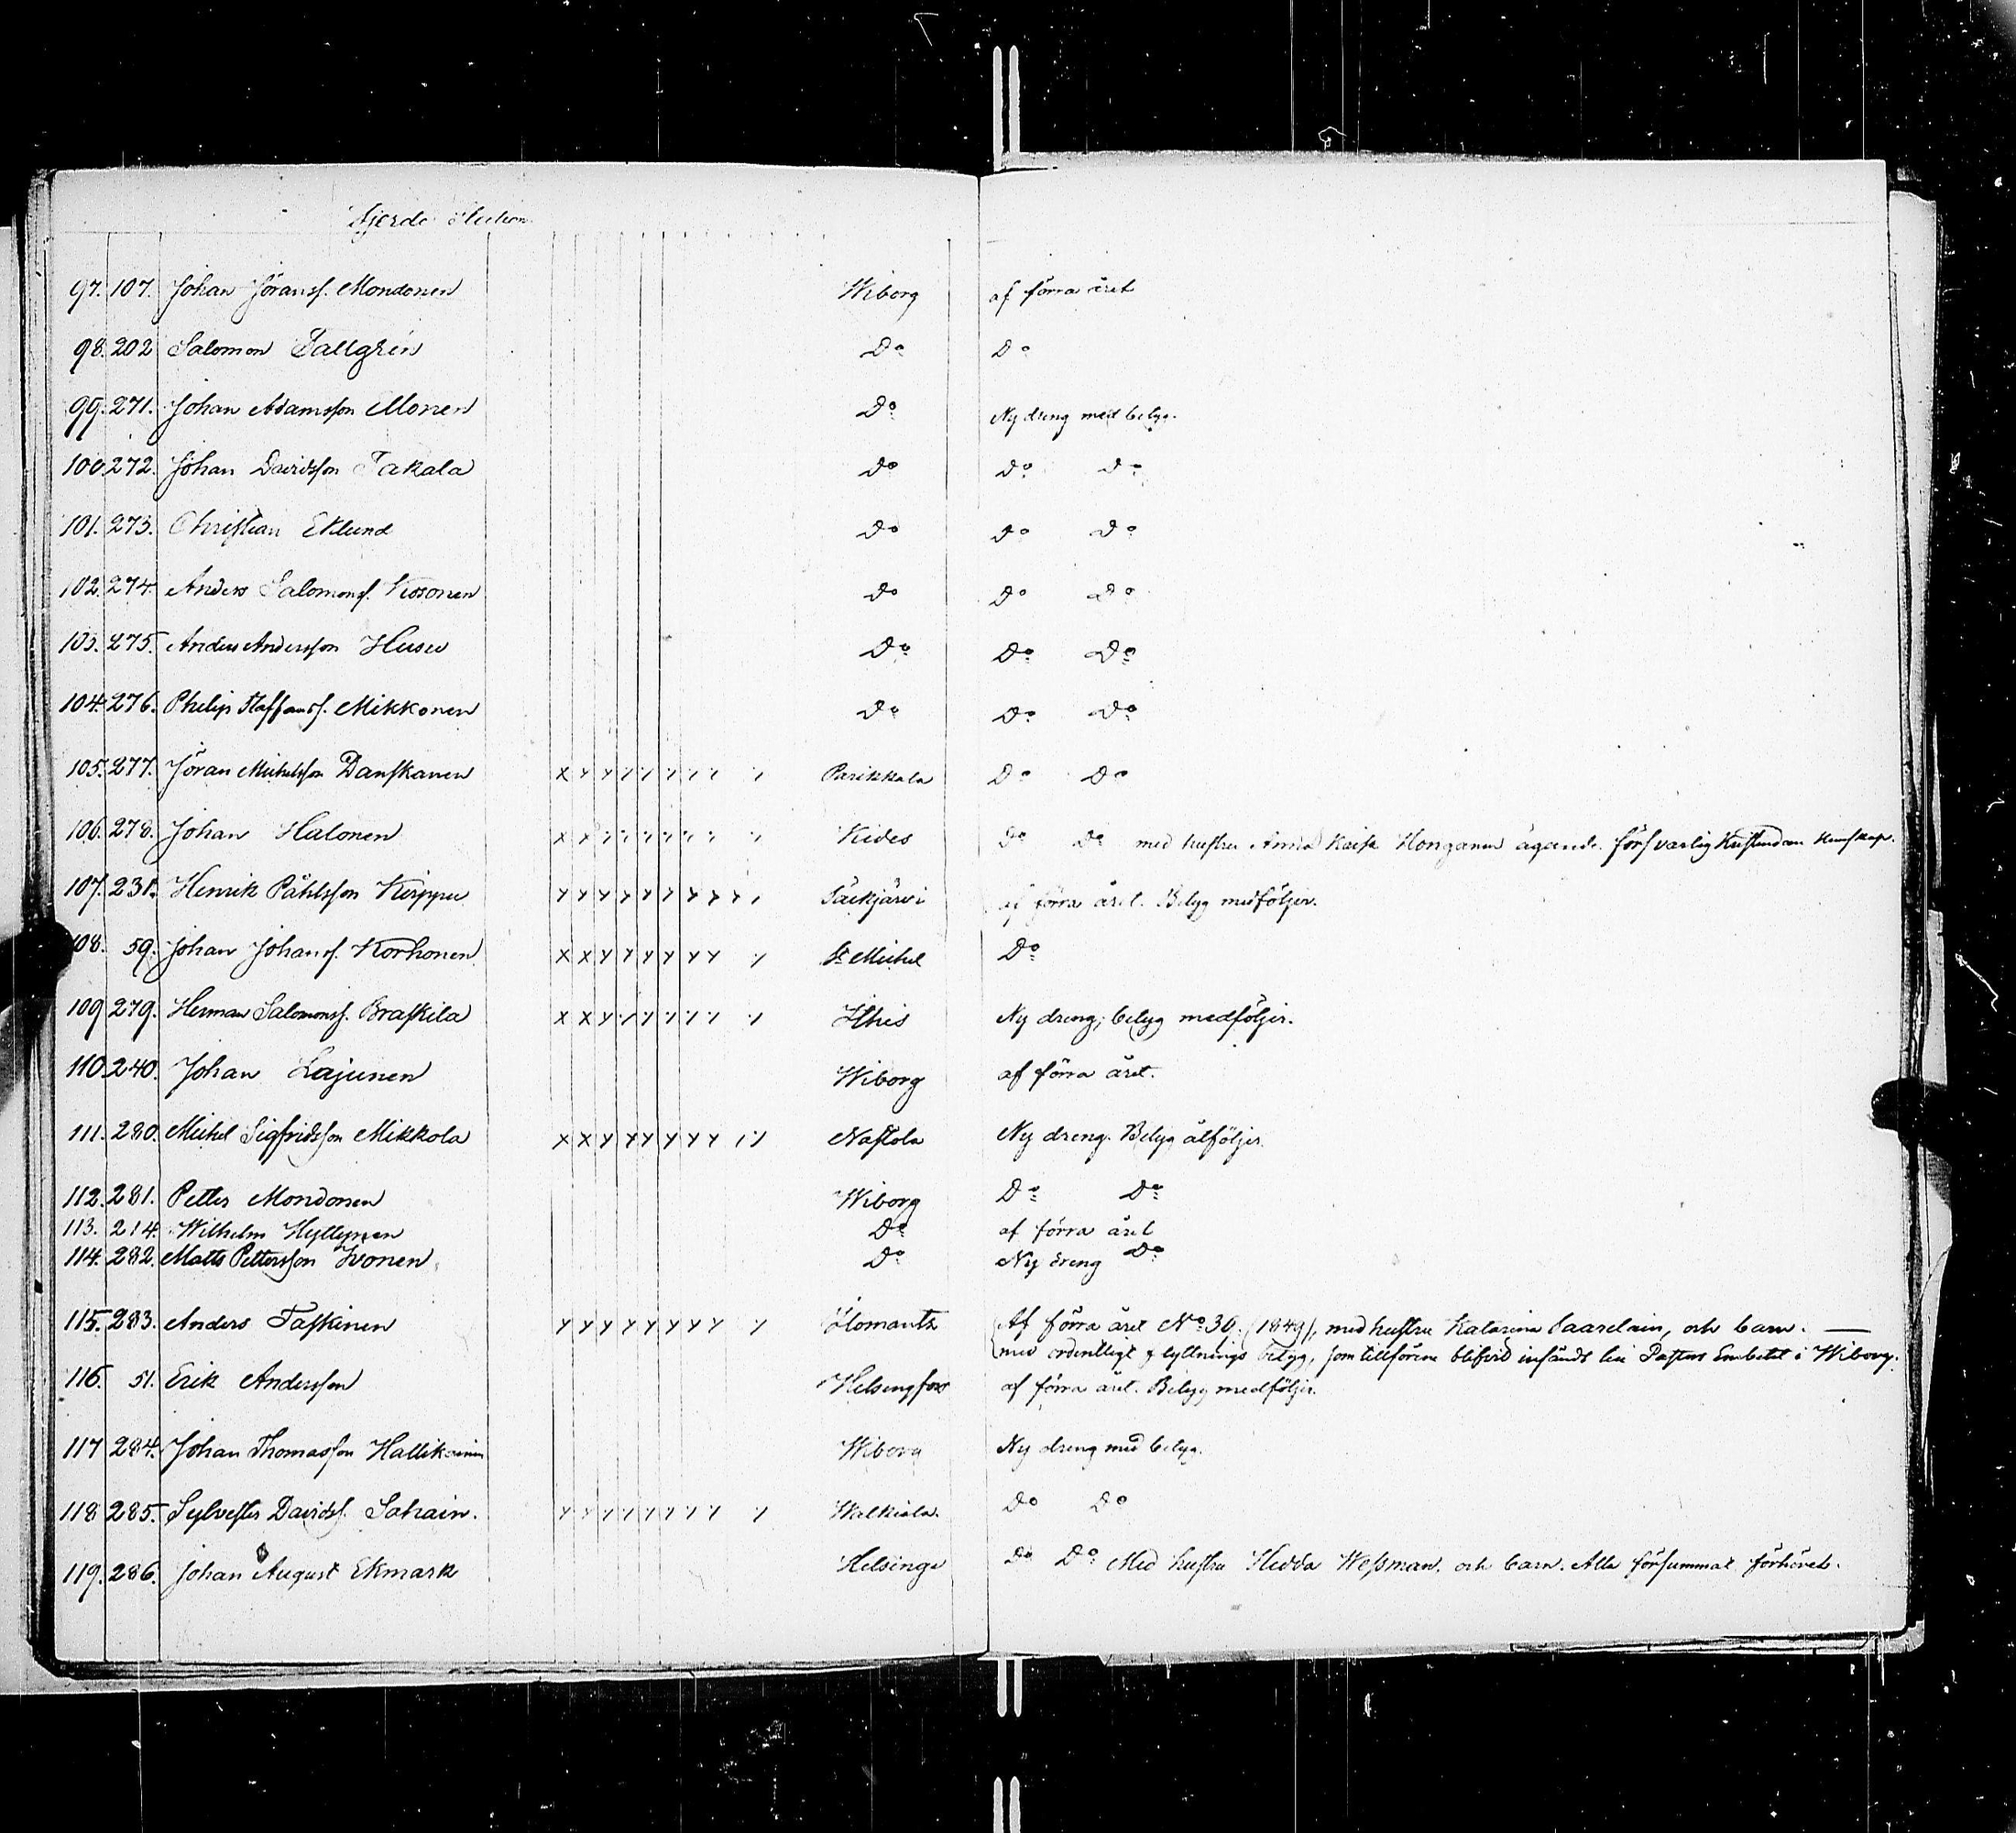 Fjerde Section
97. 107. Johan Göransf. Mondonen Wiborg af förra året
98. 202 Salomon Tallgrén Do Do
99. 271. Johan Adamsson Monen Do Ny dreng med betyg.
100. 272. Johan Davidsson Takala Do Do Do
101. 273. Christian Eklund Do Do Do
102. 274. Anders Salomonsf. Kosonen Do Do Do
103. 275. Anders Andersson Husu Do Do Do
104. 276. Philip Staffansf. Mikkonen Do Do Do
105. 277. Jöran Michelsson Danskanen Parikkala Do Do
106. 278. Johan Halonen Kides Do Do med hustru Anna Honganen ägande försvarlig Kristendoms Kunskap.
107. 231. Henrik Påhlsson Kirppu Säkjärvi af förra året. Betyg medföljer.
108. 59. Johan Johansf. Korhonen St Michel Do
109 279. Herman Salomonsf. Braskila Ithis Ny dreng; betyg medföljer.
110. 240. Johan Lajunen Wiborg af förra året.
111. 280. Michel Sigfridsson Mikkola Nastola Ny dreng. Betyg åtföljer.
112. 281. Petter Mondonen Wiborg Do Do
113. 214. Wilhelm Hyttynen Do af förra året
114. 282. Matts Pettersson Ivonen Do Ny dreng Do
115. 283. Anders Taskinen Ilomants Af förra året No 30. (1849), med hustru Katarina Saarelain, och barn. —
med ordentligt flyttnings betyg, som tillförene blifvit insändt till Pastors Embetet i Wiborg.
116. 51. Erik Andersson Helsingfors af förra året. Betyg medföljer.
117 284. Johan Thomasson Hallikainen Wiborg Ny dreng med betyg.
118 285. Sylvester Davidsf. Sahain. Walkiala. Do Do
119. 286. Johan August Ekmark Helsinge Do Do Med hustru Hedda Wessman. och barn. Alla försummat förhöret.